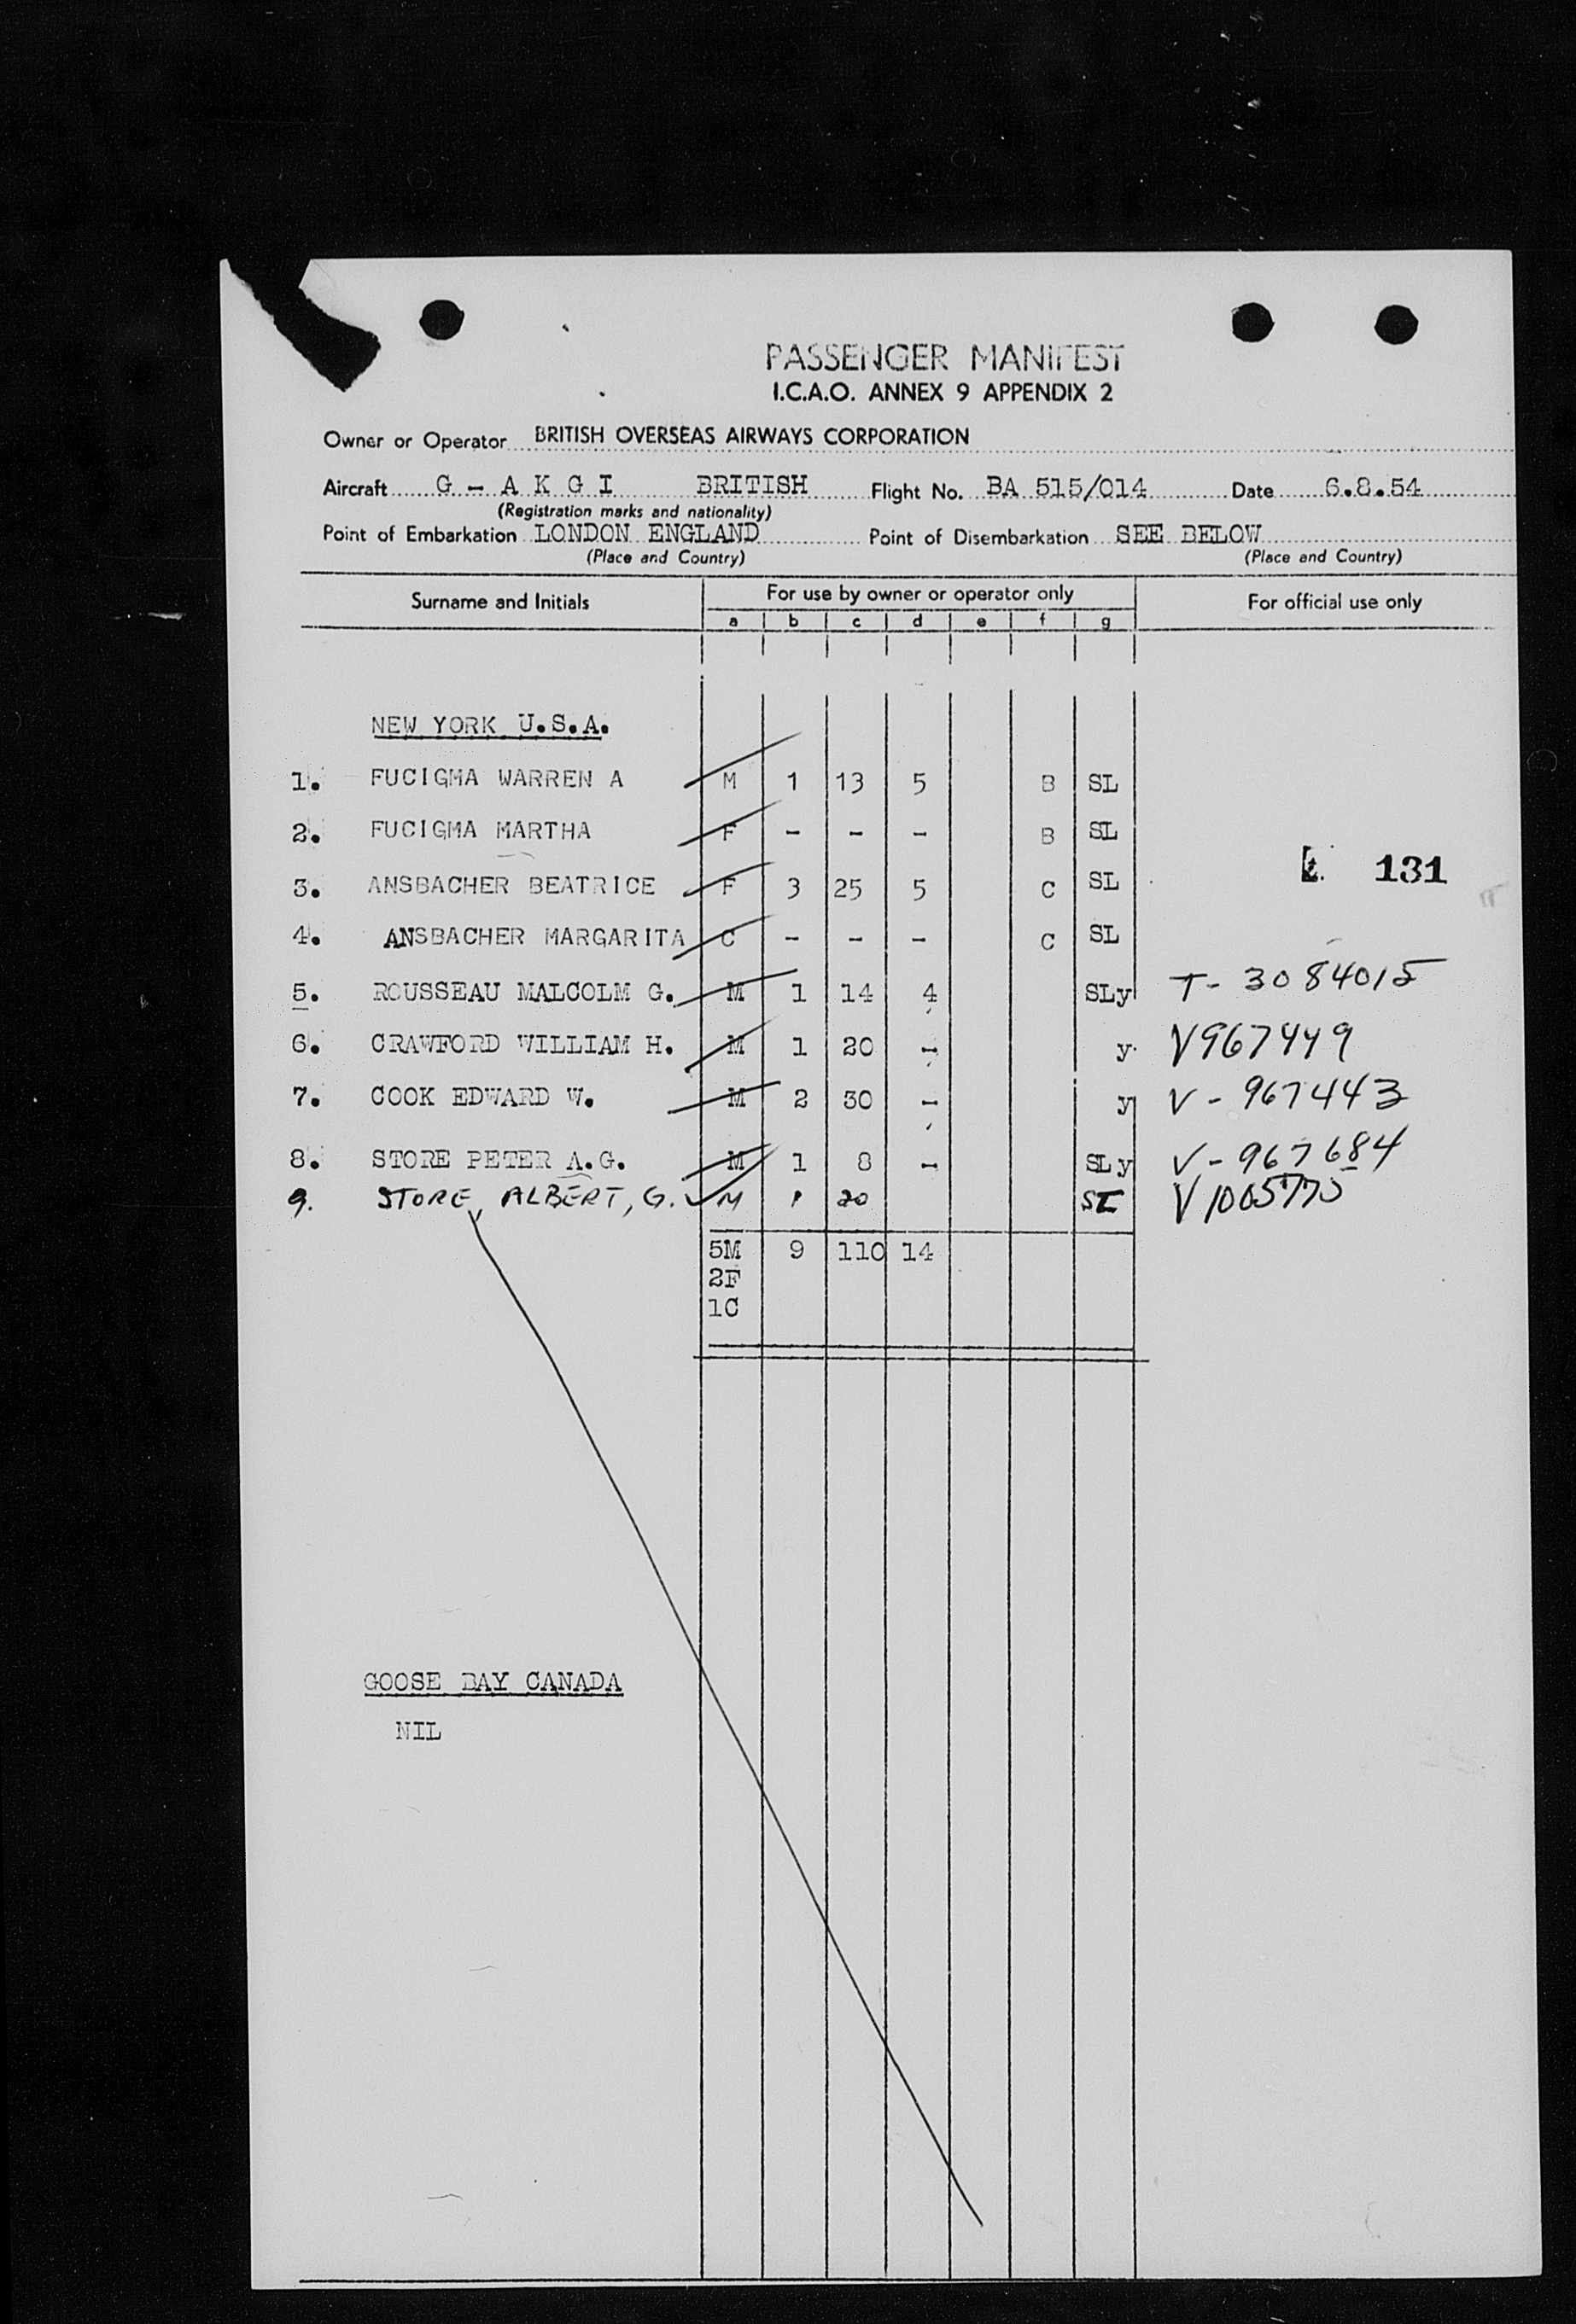 PASSENGER MANIFEST
I.C.A.O. ANNEX 9 APPENDIX 2
Owner or Operator BRITISH OVERSEAS AIRWAYS CORPORATION
Aircraft G - A K G I BRITISH Flight No. BA 515/014 Date 6.8.54
(Registration marks and nationality)
Point of Embarkation LONDON ENGLAND Point of Disembarkation SEE BELOW
(Place and Country) (Place and Country)
Surname and Initials For use by owner or operator only For official use only
a b c d e f g
NEW YORK U.S.A.
1. FUCIGMA WARREN A M 1 13 5 B SL
2. FUCIGMA MARTHA F - - - B SL
131
3. ANSBACHER BEATRICE F 3 25 5 C SL
4. ANSBACHER MARGARITA C - - - C SL
5. ROUSSEAU MALCOLM G. M 1 14 4 SLy T- 3084015
6. CRAWFORD WILLIAM H. M 1 20 - y V967449
7. COOK EDWARD W. M 2 30 - y V-967443
8. STORE PETER A.G. M 1 8 - SLy V-967684
9. STORE, ALBERT, G. M 1 20 SL
5M 9 110 14
2F
1C
GOOSE BAY CANADA
NIL